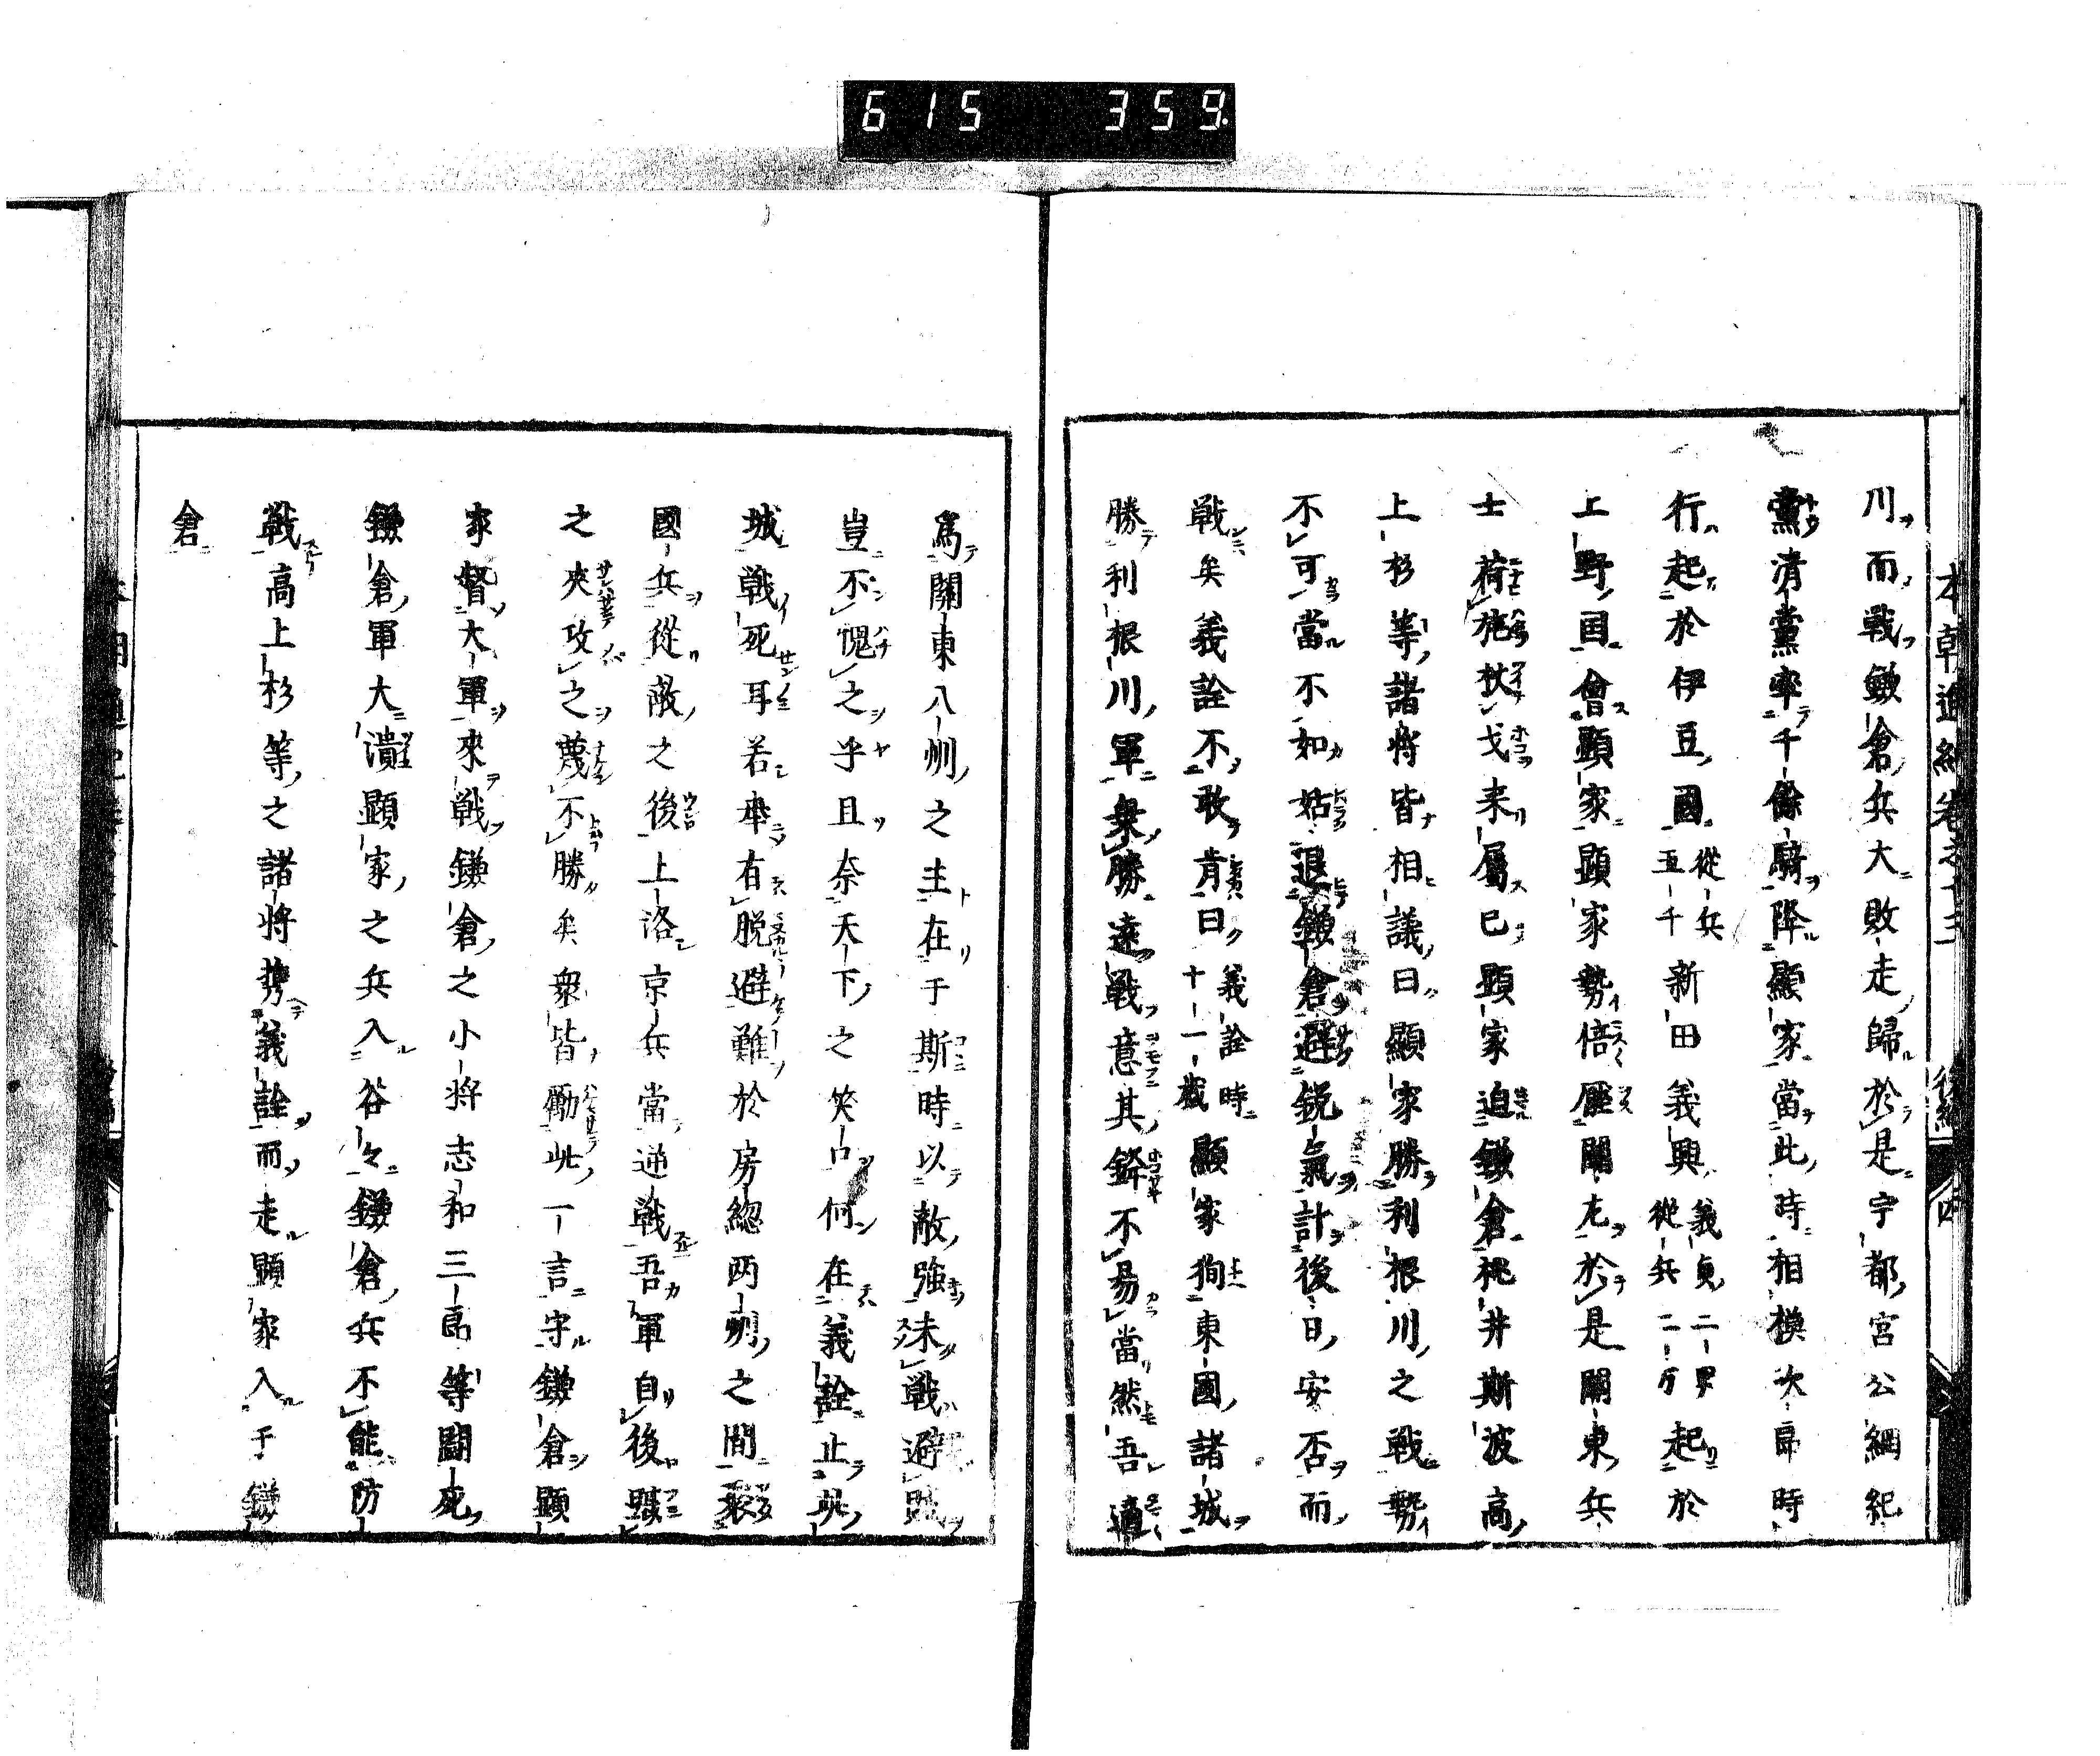 615 359.
本朝通紀卷之十三 後編 四
川而戰鎌倉兵大敗走歸於是宇都宮公綱紀
黨清黨率千餘騎降顯家當此時相模次郎時
行起於伊豆國從兵五千新田義興義貞二男從兵二万起於
上野国會顯家顯家勢倍歴關左於是關東兵
士荷旄杖戈来屬已顯家迫鎌倉桃井斯波高
上杉等諸将皆相議曰顯家勝利根川之戰勢
不可當不如姑退鎌倉避鋭氣計後日安否而
戰矣義詮不敢肯曰義詮時十一歳顯家狥東國諸城
勝利根川軍衆勝遠戰意其鋒不易當然吾適
爲關東八州之主在于斯時以敵強未戰避
豈不愧之乎且奈天下之笑口何在義詮止此
城戰死耳若幸有脱避難於房総两州之間
國兵從敵之後上洛京兵當通戰吾軍自後
之夾攻之蔑不勝矣衆皆勵此一言守鎌倉顯
家督大軍來戰鎌倉之小将志和三郎等鬪死
鎌倉軍大潰顯家之兵入谷々鎌倉兵不能防
戰高上杉等之諸将携義詮而走顯家入于鎌
倉